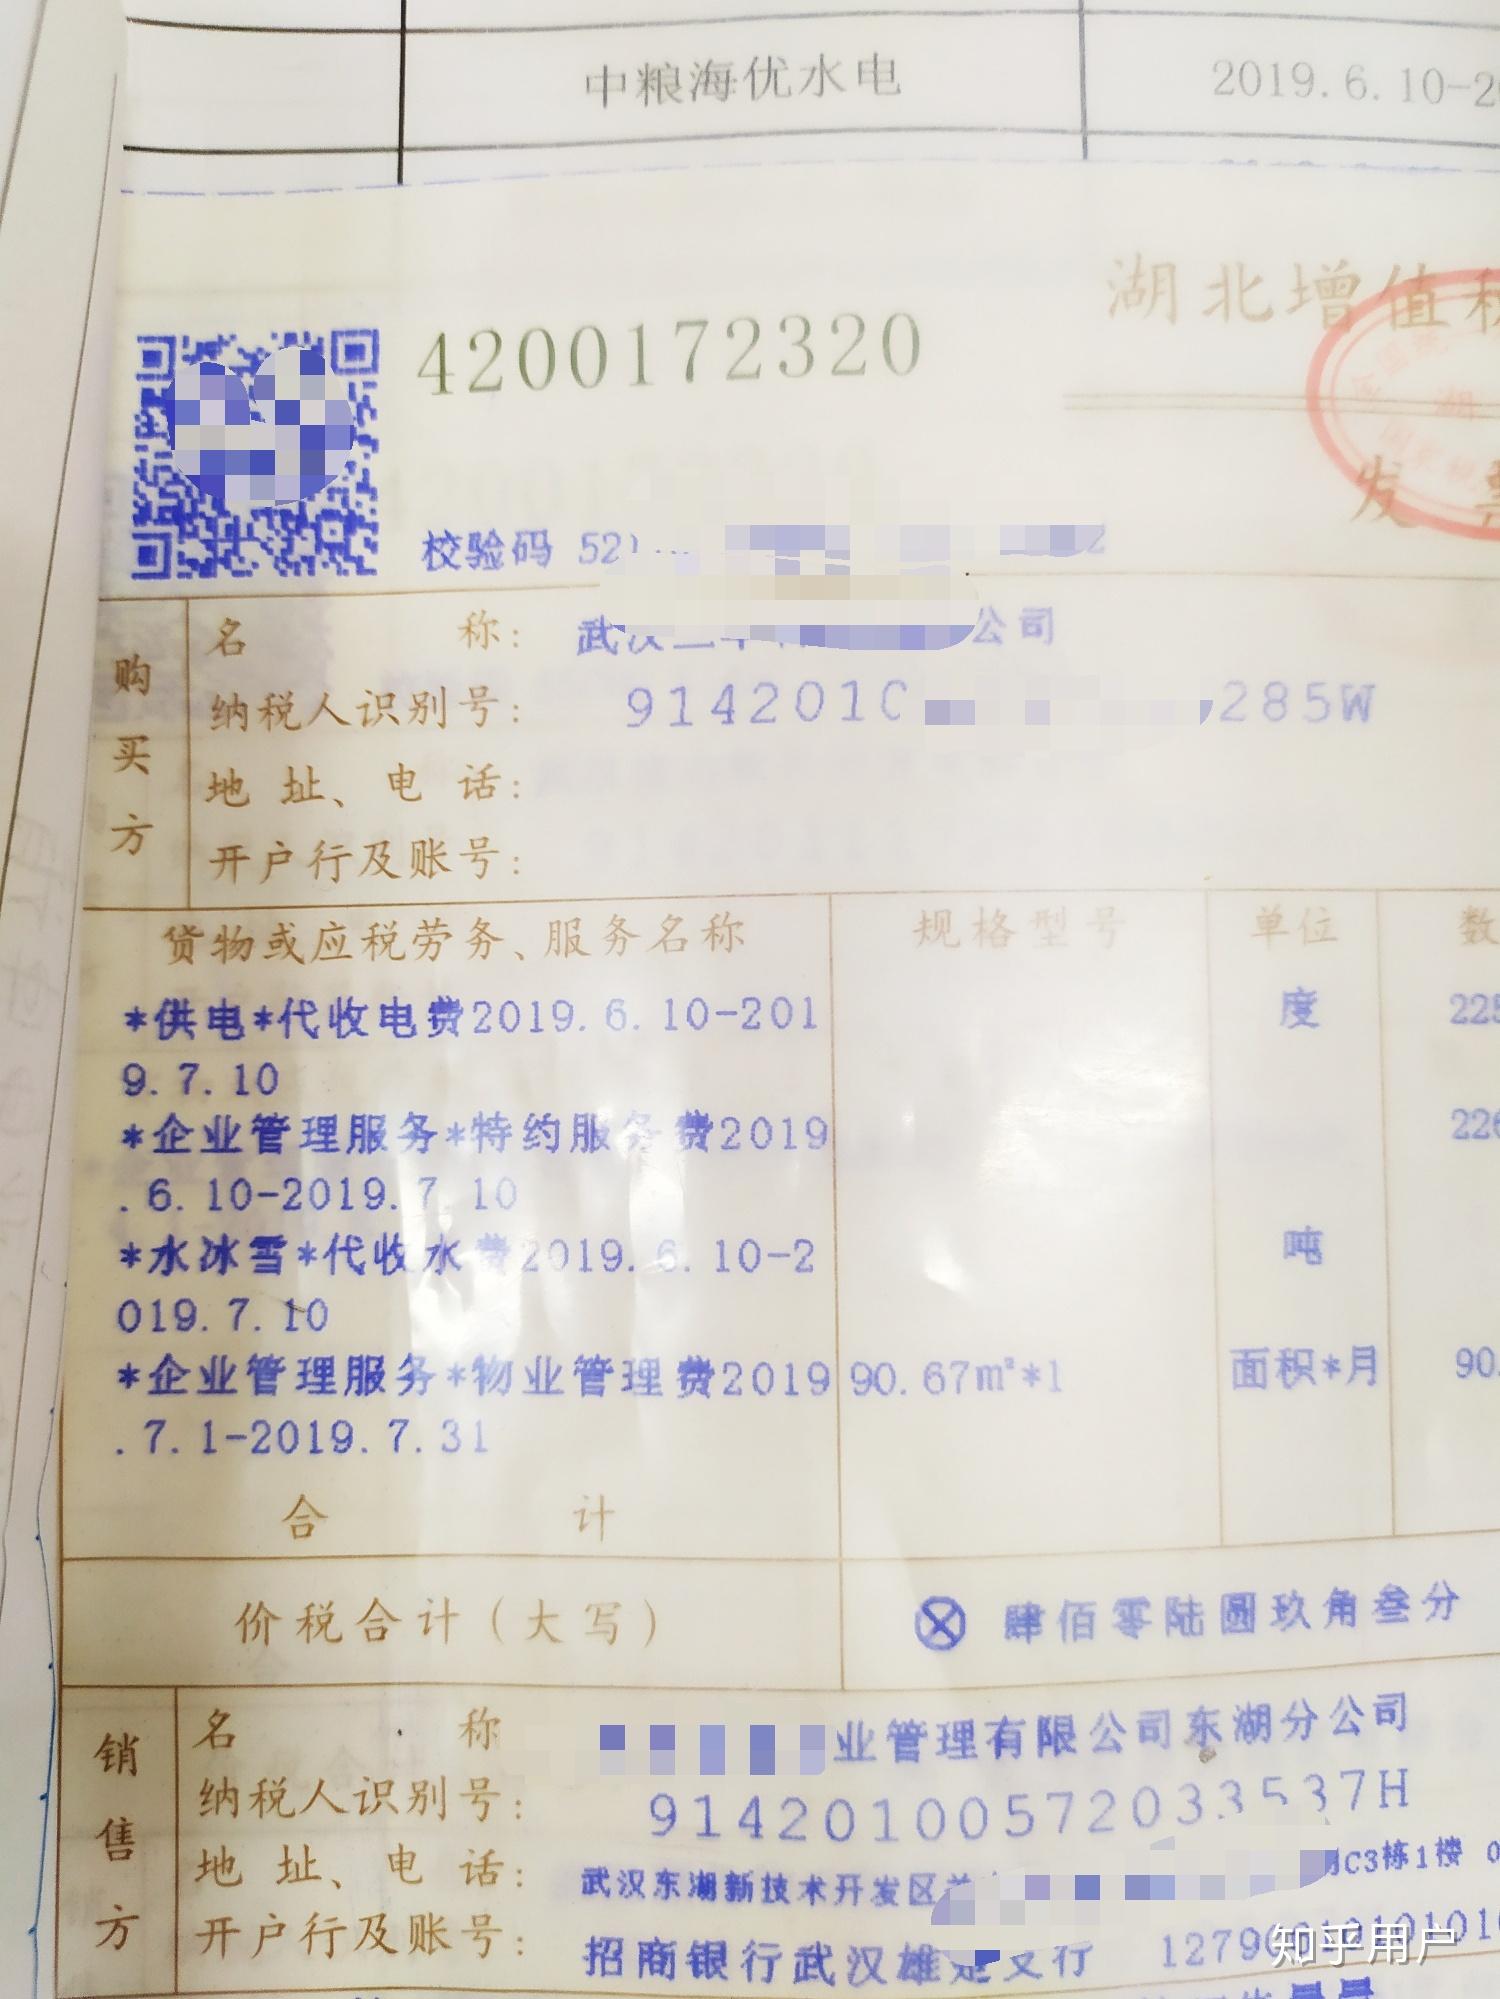 中粮海优水电 2019.6.10-20
4200172320
湖北增值税
发票
校验码 52
名称: 武汉 公司
购买方
纳税人识别号: 914201 285W
地址、电话:
开户行及账号:
货物或应税劳务、服务名称 规格型号 单位 数
*供电*代收电费2019.6.10-201 度 225
9.7.10
*企业管理服务*特约服务费2019 226
.6.10-2019.7.10
*水冰雪*代收水费2019.6.10-2 吨
019.7.10
*企业管理服务*物业管理费2019 90.67m²*1 面积*月 90.
.7.1-2019.7.31
合计
价税合计(大写) ⊗ 肆佰零陆圆玖角叁分
销售方
名称 业管理有限公司东湖分公司
纳税人识别号: 91420100572033537H
地址、电话: 武汉东湖新技术开发区 C3栋1楼 0
开户行及账号: 招商银行武汉雄楚支行 1279
知乎用户